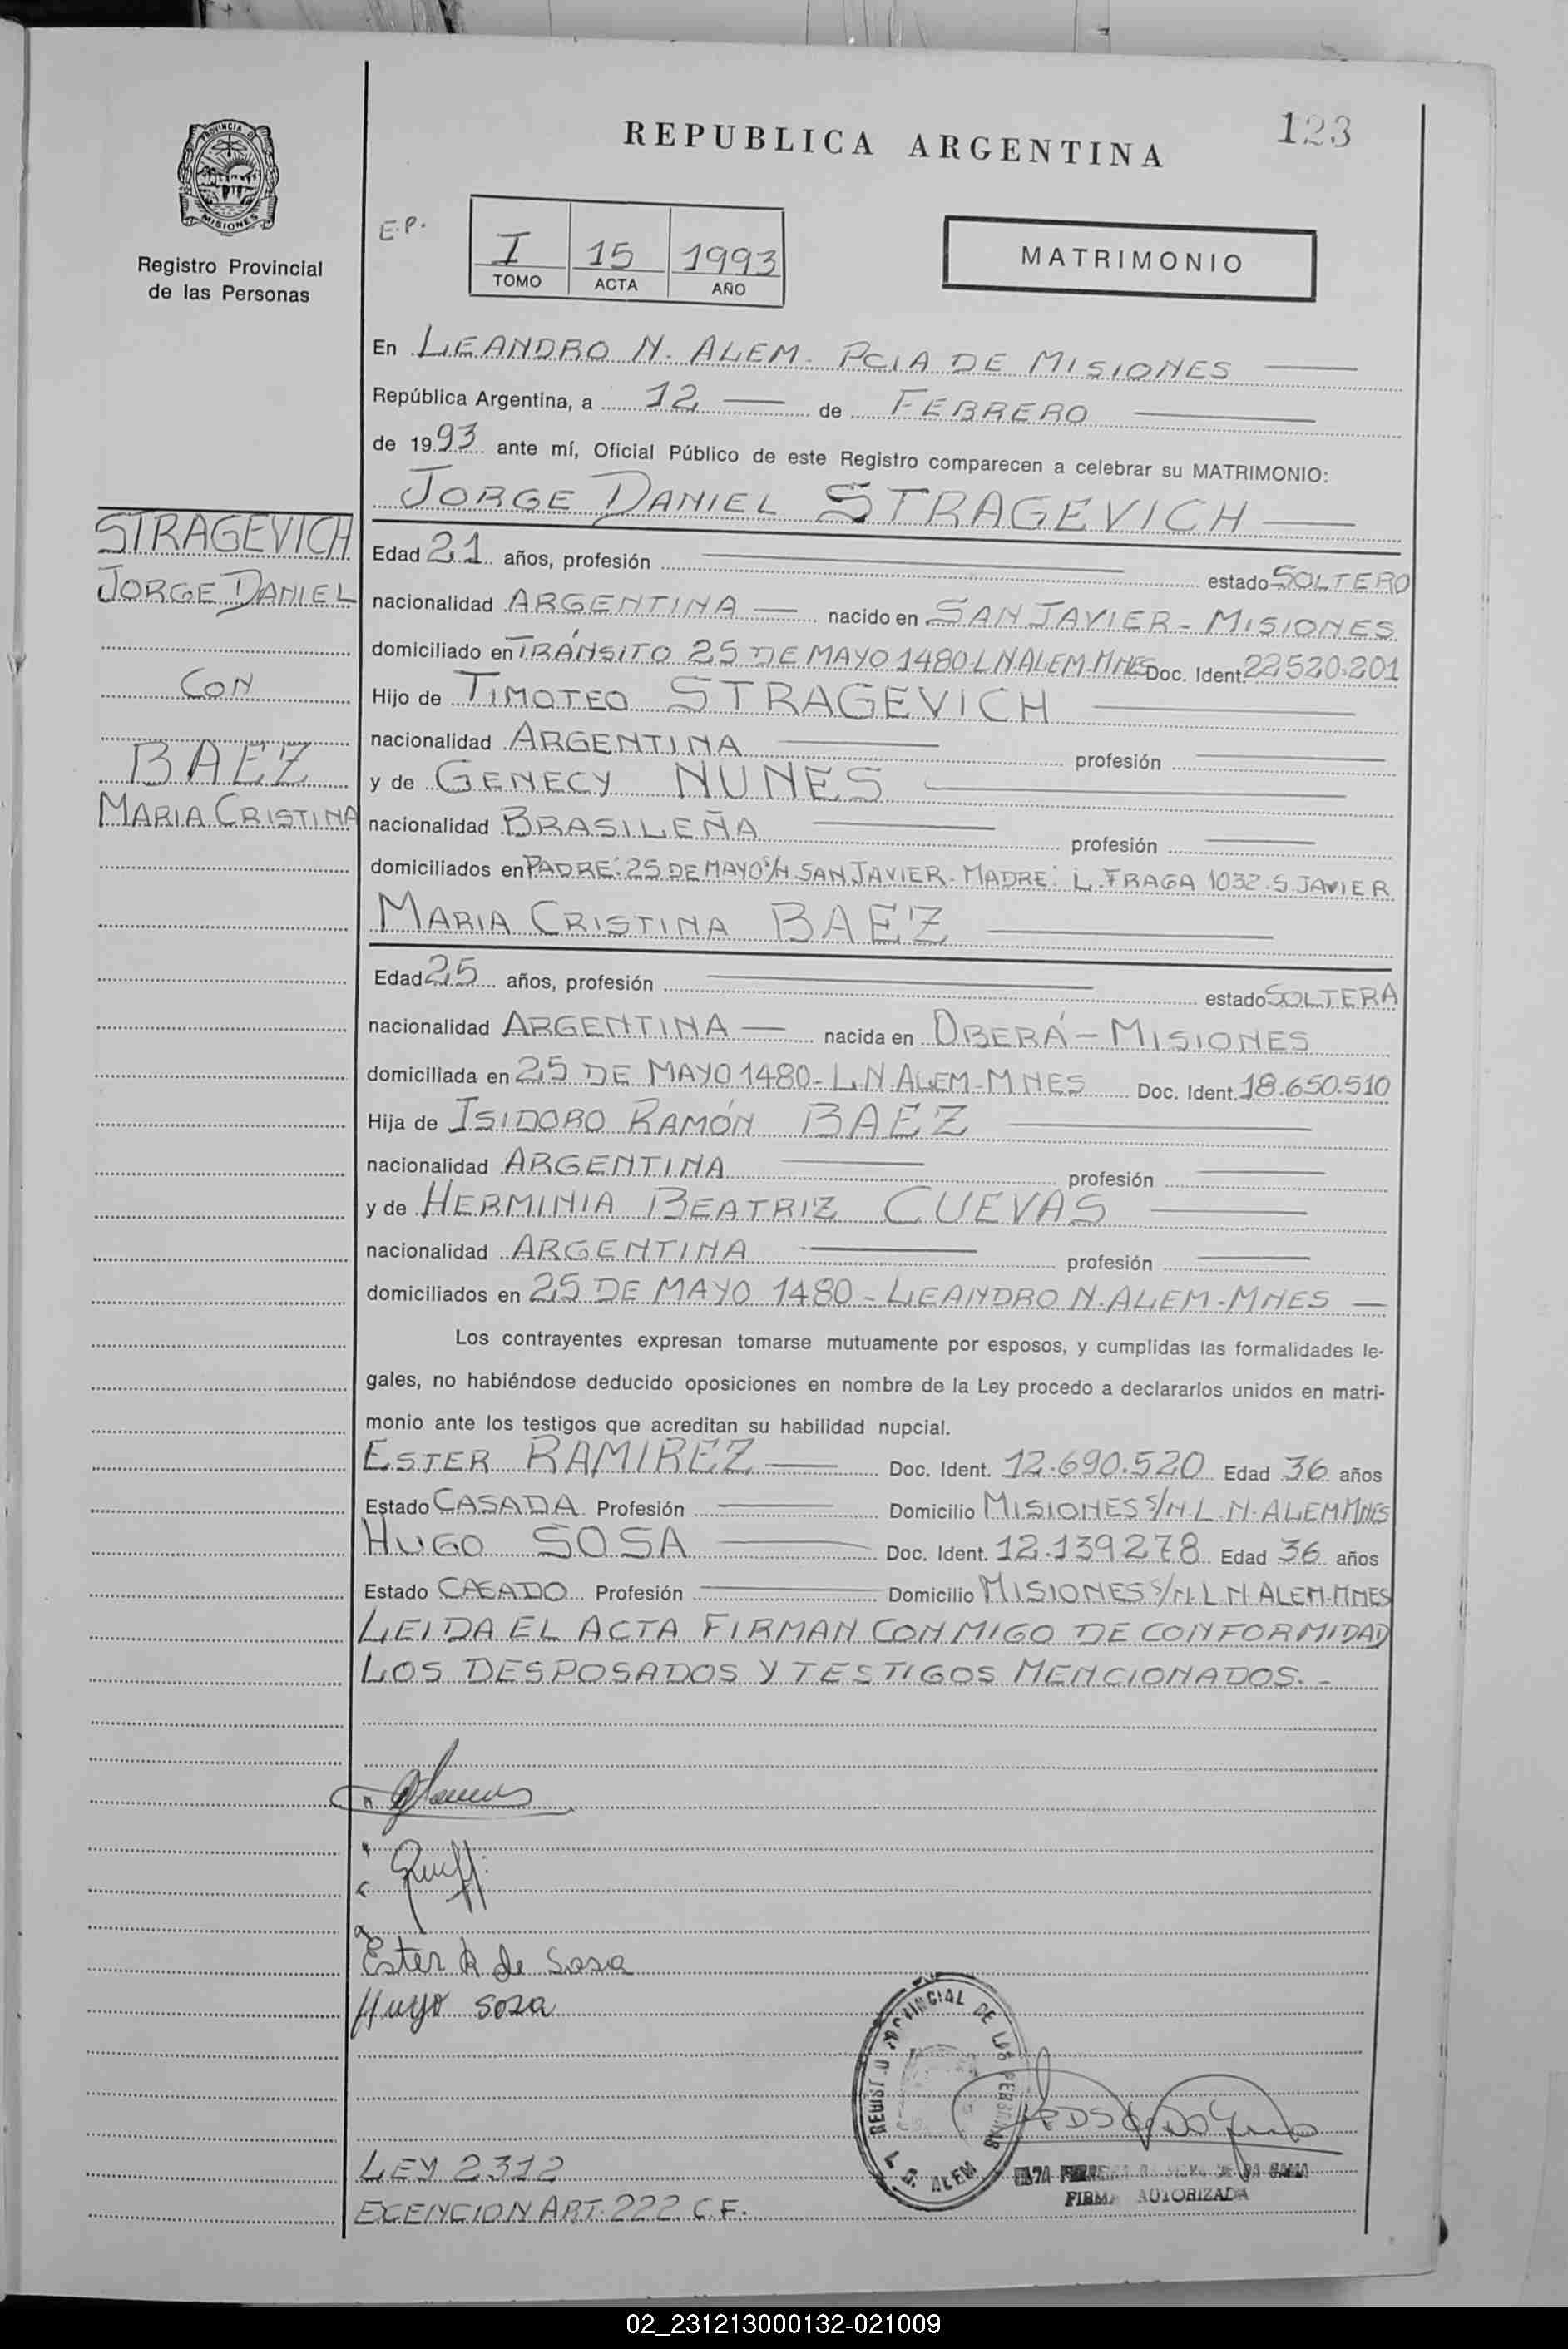 123
REPUBLICA ARGENTINA
PROVINCIA D
MISIONES
Registro Provincial
de las Personas
E.P.
I 15 1993
TOMO ACTA AÑO
MATRIMONIO
En LEANDRO N. ALEM - PCIA DE MISIONES
República Argentina, a 12 de FEBRERO
de 1993 ante mí, Oficial Público de este Registro comparecen a celebrar su MATRIMONIO:
JORGE DANIEL STRAGEVICH
STRAGEVICH
JORGE DANIEL
CON
BAEZ
MARIA CRISTINA
Edad 21 años, profesión estado SOLTERO
nacionalidad ARGENTINA nacido en SAN JAVIER - MISIONES
domiciliado en TRÁNSITO 25 DE MAYO 1480-L N ALEM-MNES Doc. Ident. 22520.201
Hijo de TIMOTEO STRAGEVICH
nacionalidad ARGENTINA profesión
y de GENECY NUNES
nacionalidad BRASILEÑA profesión
domiciliados en PADRE: 25 DE MAYO S/N SAN JAVIER - MADRE: L. FRAGA 1032 - S. JAVIER
MARIA CRISTINA BAEZ
Edad 25 años, profesión estado SOLTERA
nacionalidad ARGENTINA nacida en OBERÁ - MISIONES
domiciliada en 25 DE MAYO 1480 - L.N ALEM - MNES Doc. Ident. 18.650.510
Hija de ISIDORO RAMÓN BAEZ
nacionalidad ARGENTINA profesión
y de HERMINIA BEATRIZ CUEVAS
nacionalidad ARGENTINA profesión
domiciliados en 25 DE MAYO 1480 - LEANDRO N. ALEM - MNES
Los contrayentes expresan tomarse mutuamente por esposos, y cumplidas las formalidades le-
gales, no habiéndose deducido oposiciones en nombre de la Ley procedo a declararlos unidos en matri-
monio ante los testigos que acreditan su habilidad nupcial.
ESTER RAMIREZ Doc. Ident. 12.690.520 Edad 36 años
Estado CASADA Profesión Domicilio MISIONES S/N L. N. ALEM MNES
HUGO SOSA Doc. Ident. 12.139278 Edad 36 años
Estado CASADO Profesión Domicilio MISIONES S/N L N ALEM-MNES
LEIDA EL ACTA FIRMAN CONMIGO DE CONFORMIDAD
LOS DESPOSADOS Y TESTIGOS MENCIONADOS. -
Ester R de Sosa
Hugo sosa
PROVINCIAL DE LAS PERSONAS
L. N. ALEM
FIRMA AUTORIZADA
LEY 2312
EXENCION ART. 222 C.F.
02_231213000132-021009